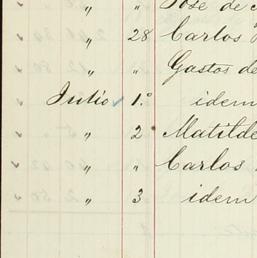 " " José de
" 28 Carlos
" " Gastos de
Julio 1.º idem
" 2 Matilde
" " Carlos
" 3 idem